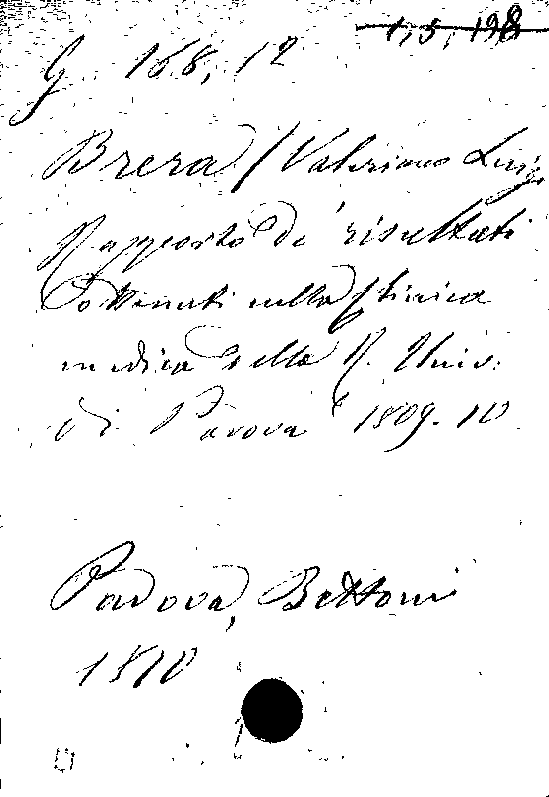 1, 5, 198
G. 168, 12
Brera (Valeriano Luigi
Rapporto di risultati
ottenuti nella Clinica
medica della R. Univ.
di Padova 1809. 10
Padova, Bettoni
1810